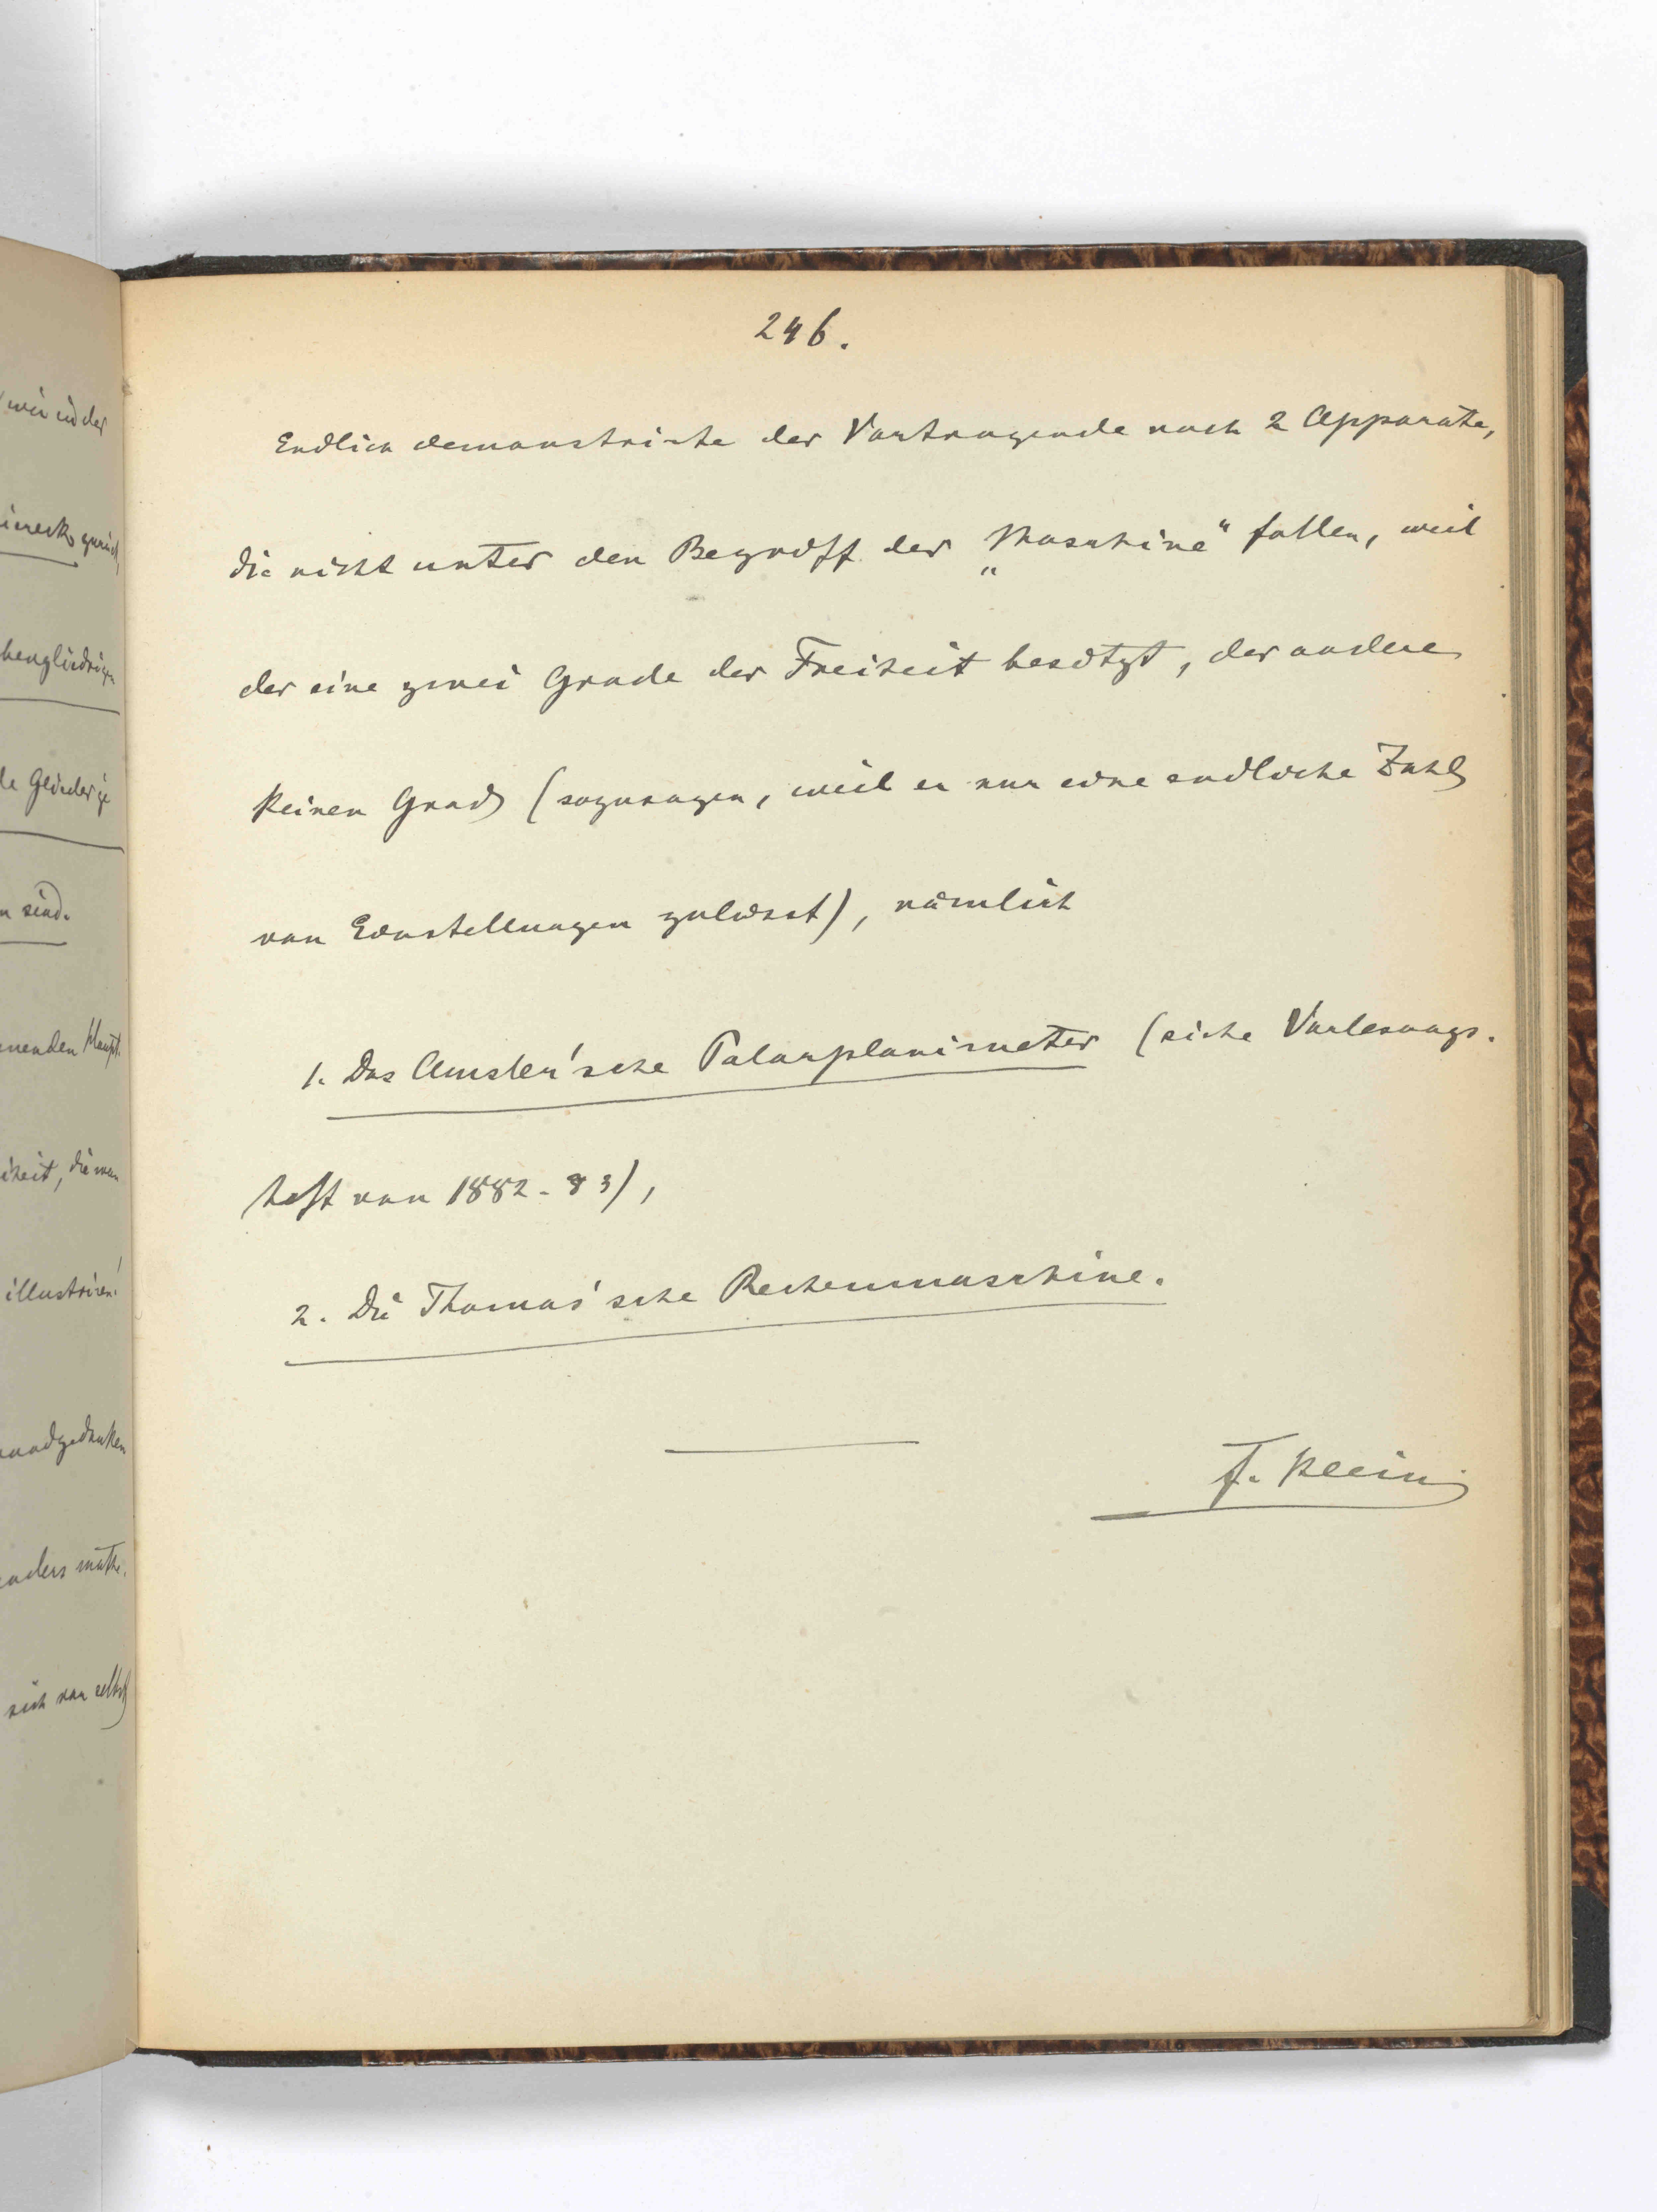 246.
Endlich demonstrirte der Vortragende noch 2 Apparate,
die nicht unter den Begriff der „Maschine“ fallen, weil
der eine zwei Grade der Freiheit besitzt, der andere
keinen Grad (sozusagen, weil er nur eine endliche Zahl
von Einstellungen zulässt), nämlich
1. Das Amsler'sche Polarplanimeter (siehe Vorlesungs-
heft von 1882-83),
2. Die Thomas'sche Rechenmaschine.
F. Klein
wir in der
zurück,
Glieder
n sind.
Haupt-
die man
illustriren!
sich von selbst